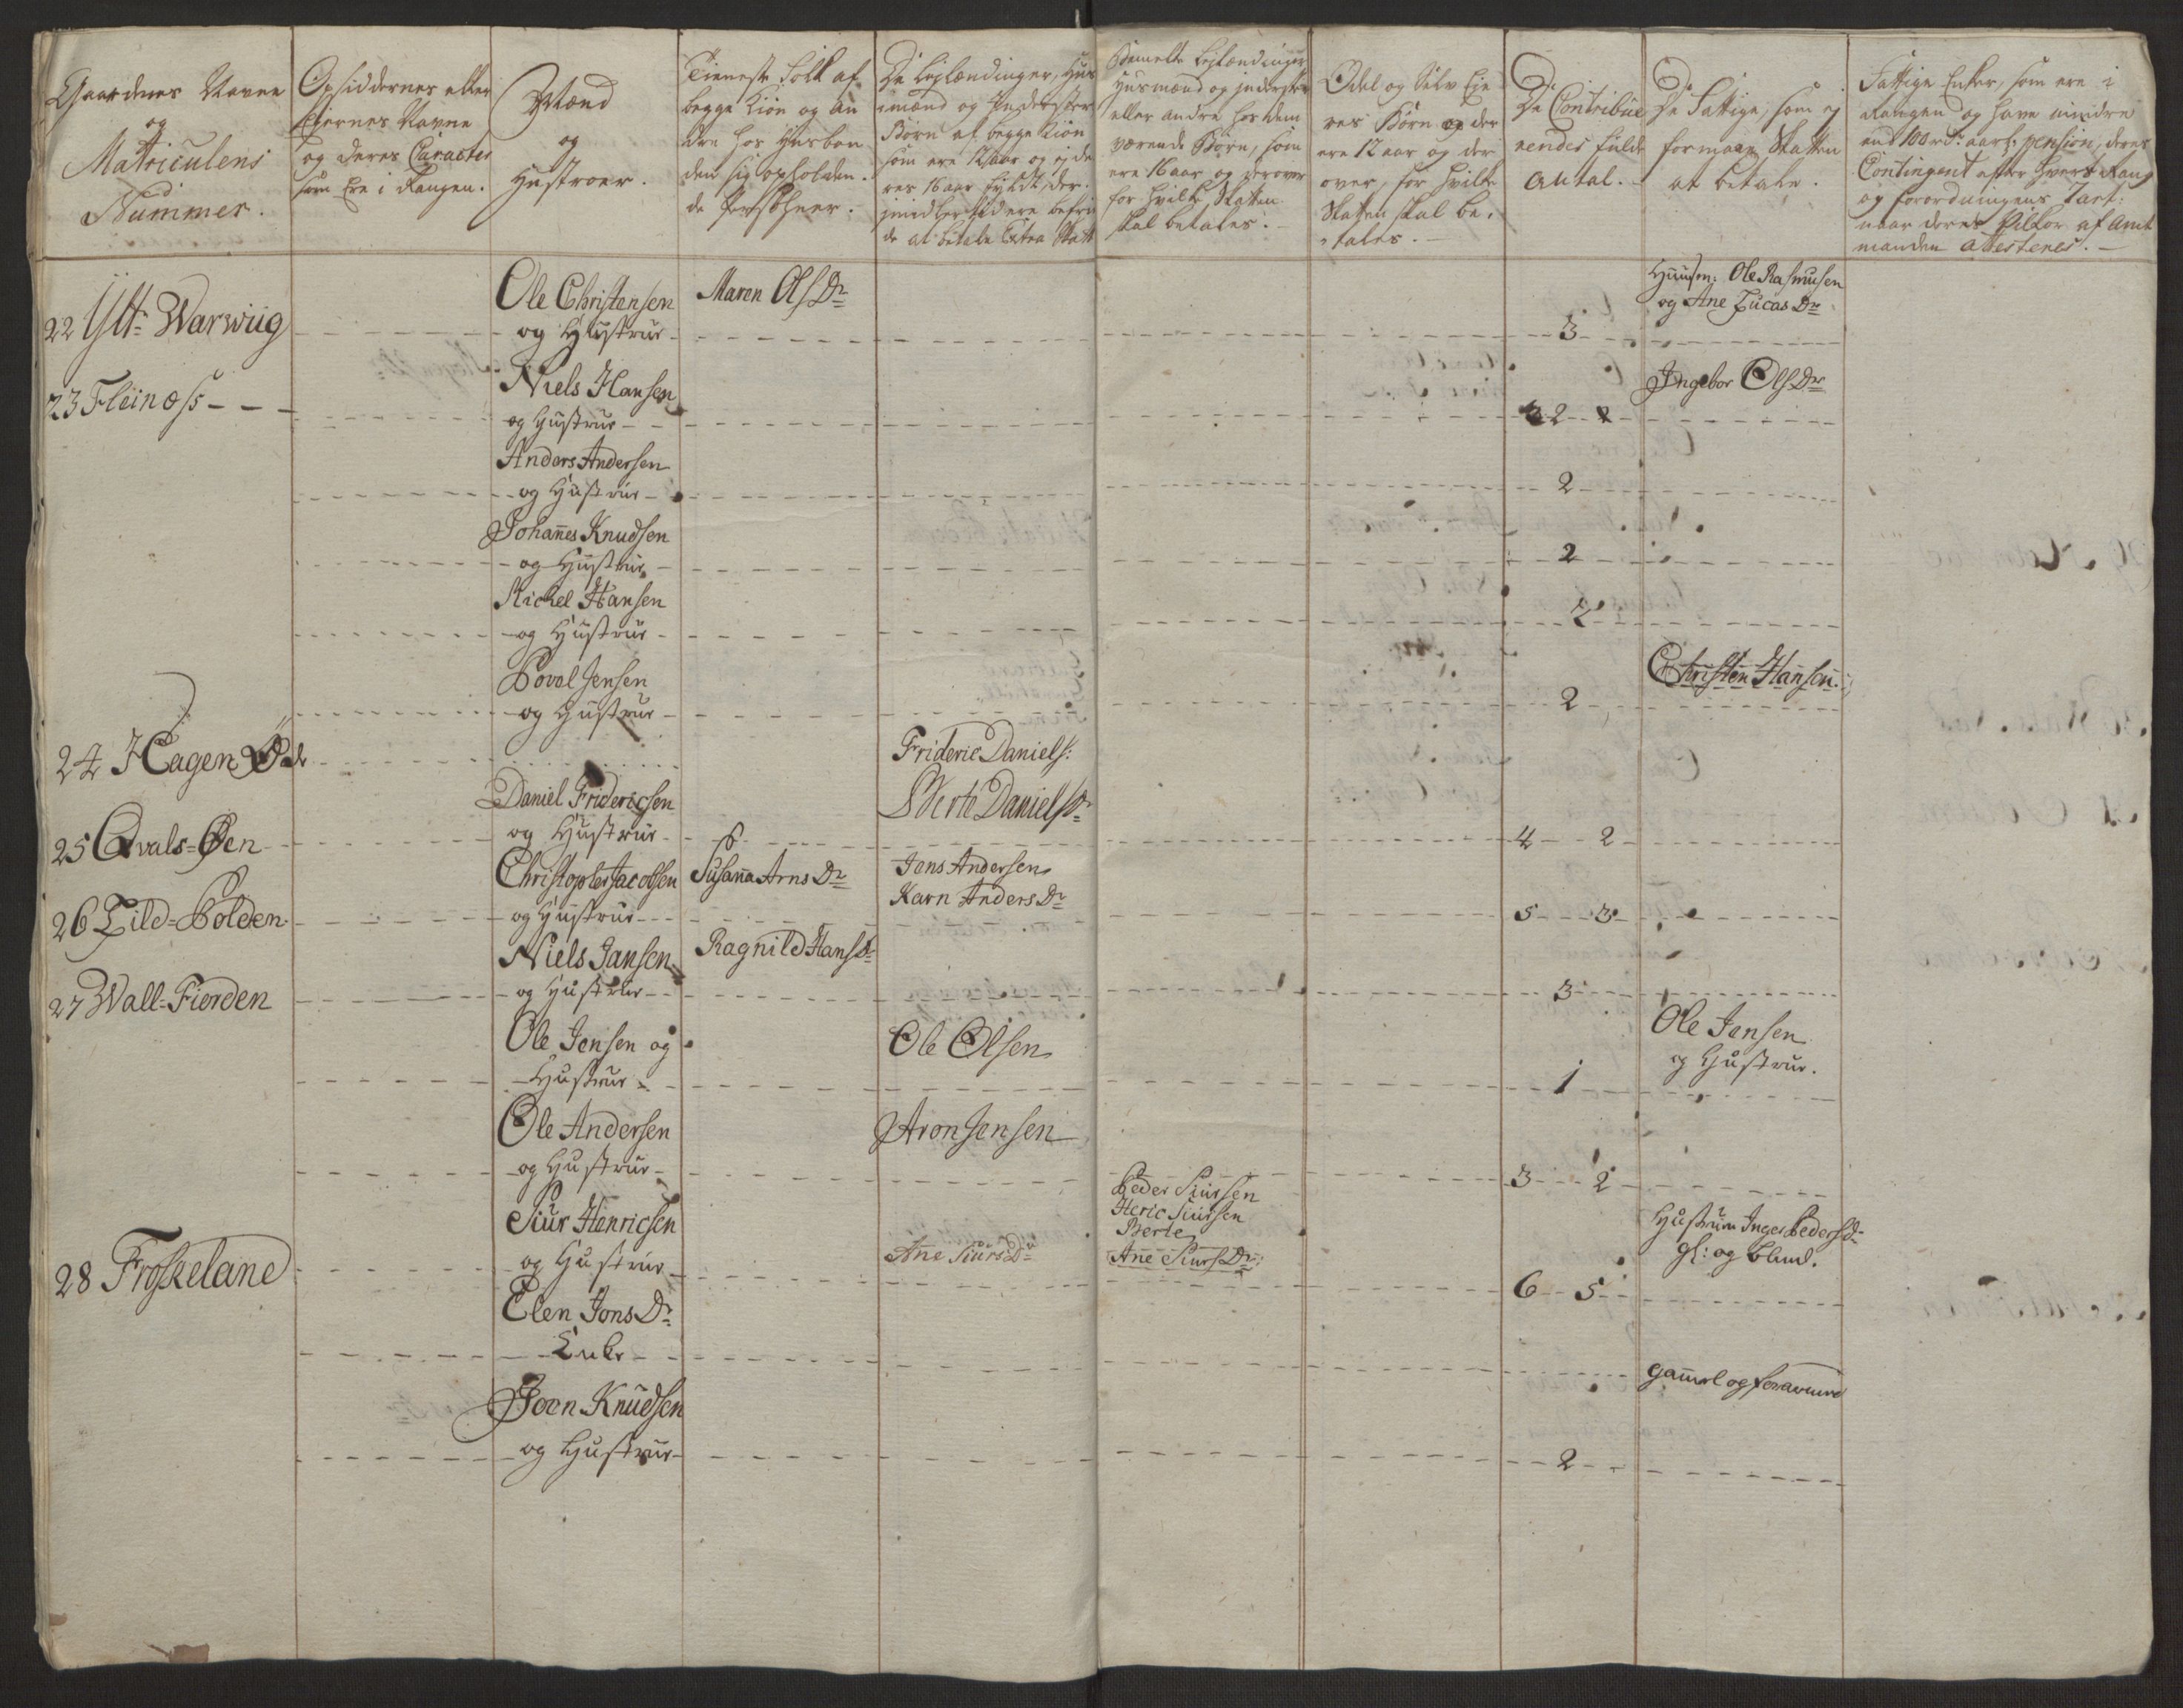 Gaardenes Navne
og
Matriculens
Nummer.
Opsiddernes eller
Ejernes Navne
og deres Caracter
som Ere i Rangen.
Mænd
og
Hustroer.
Tieneste Folk af
begge Kiøn og an
dre hos Husbon
den sig opholden
de Persohner.
De Leylændinger, Huus
mænd og Inderster
Børn af begge Kiøn
som ere 12 aar og ej de
res 16 aar fyldt, der
imidlertid ere befri
de at betale Extra Skatt
Bemelte Leylændinger
Husmænd og inderster
eller andre hos dem
værende Børn, som
ere 16 aar og derover
for hvilke Skatten
skal betales.
Odel og Selv Eje
res Børn og der
ere 12 aar og der
over, for hvilke
Skatten skal be-
tales.
De Contribue
rendes fulde
Antal.
De Fattige, som ej
formaar Skatten
at betale.
Fattige Enker, som ere i
Rangen og have mindre
end 100 rd: aarl: pension, deres
Contingent efter hvers Rang
og forordningens Tart:
naar deres Vilkor af Amt
manden attesteres.
22 Ytt: Warwiig
Ole Christensen
og Hustrue
Maren OlsDr
3
Huusm: Ole Rasmusen
og Ane LucasDr
23 Fleinæss
Niels Hansen
og Hustrue
2
Ingebor OlsDr
Anders Andersen
og Hustrue
2
Johannes Knudsen
og Hustrue
2
Michel Hansen
og Hustrue
2
Povel Jensen
og Hustrue
2
Christen Hansen
24 Hagen Øde
25 Qvals=Øen
Daniel Friderichsen
og Hustrue
Frideric Daniels:
Berte DanielsDr
4 2
26 Lild=Polden
Christopher Jacobsen
og Hustrue
Susanna ArnsDr
Jens Andersen
Karn AndersDr
5 3
27 Wall=Fiorden
Niels Jansen
og Hustrue
Ragnild HansDr
3
Ole Jensen og
Hustrue
Ole Olsen
1
Ole Jensen
og Hustrue.
Ole Andersen
og Hustrue
Aron Jensen
3 2
28 Froskeland
Siur Henricsen
og Hustrue
Ane SiursDr
Peder Siursen
Heric Siursen
Berte
Ane SiursDr:
6 5
Hustrue Inger PedersDr
gl: og blind.
Elen JonsDr
Enke
gammel og foraarmed
Joen Knudsen
og Hustrue
2